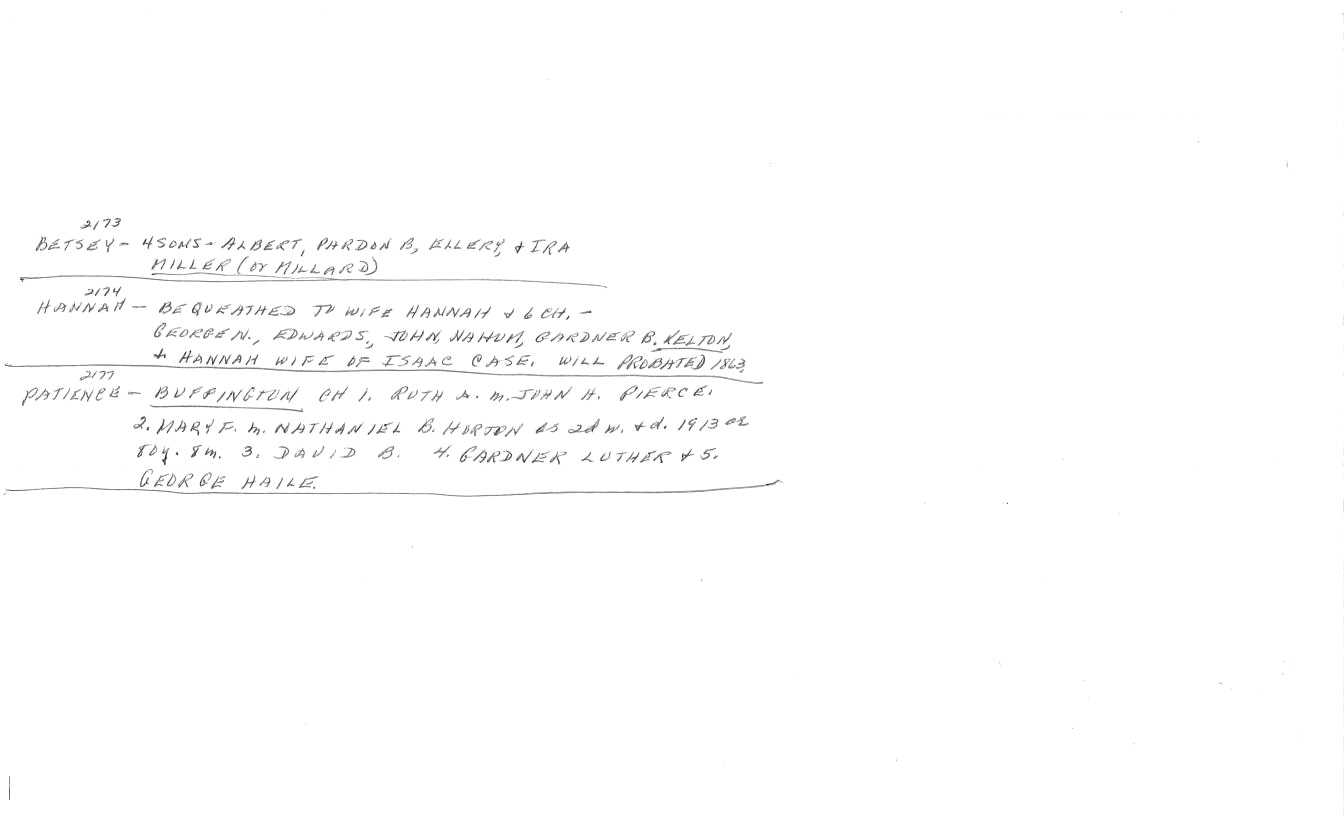 2173
BETSEY - 4 SONS - ALBERT, PARDON B, ELLERY, & IRA
MILLER (or MILLARD)
2174
HANNAH - BEQUEATHED TO WIFE HANNAH & 6 CH. -
GEORGE N., EDWARD S., JOHN, NAHUM, GARDNER B. KELTON,
& HANNAH WIFE OF ISAAC CASE. WILL PROBATED 1863.
2177
PATIENCE - BUFFINGTON CH 1. RUTH A. m. JOHN H. PIERCE.
2. MARY F. m. NATHANIEL B. HORTON as 2d w. & d. 1913 ae
80y. 8m. 3. DAVID B. 4. GARDNER LUTHER & 5.
GEORGE HAILE.